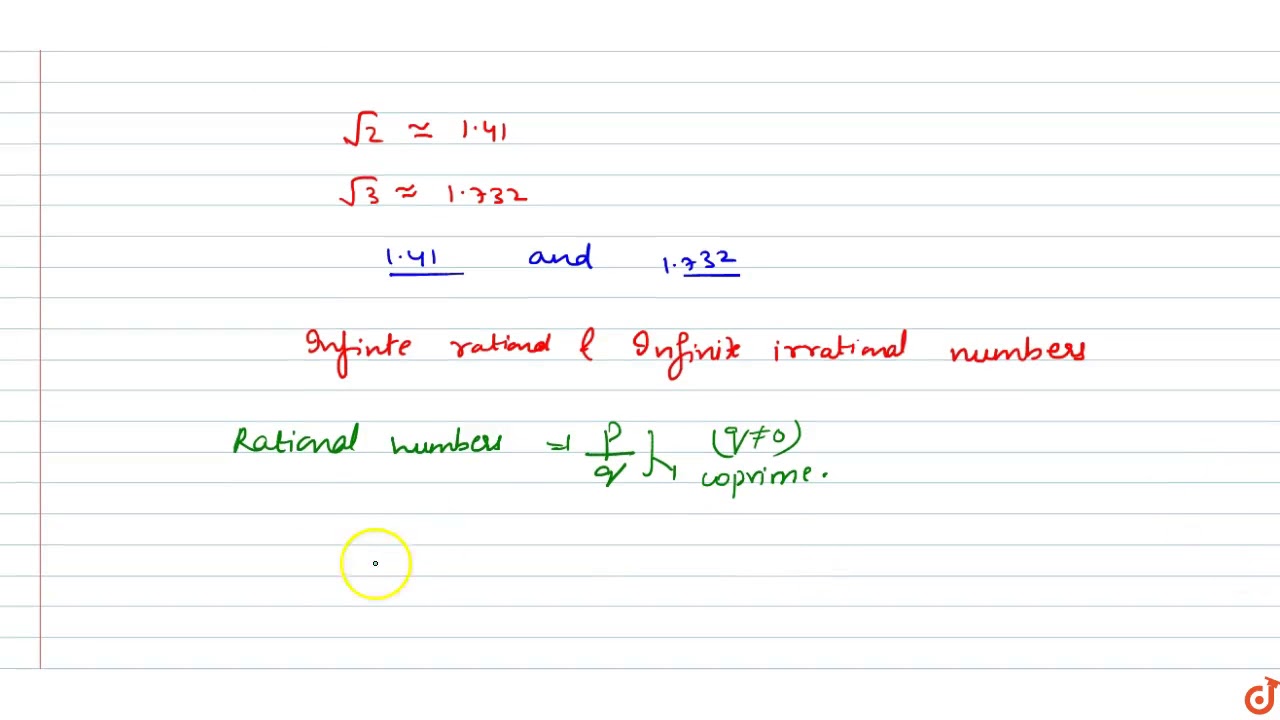 √2 ≃ 1.41
√3 ≈ 1.732
1.41 and 1.732
Infinte rational & Infinite irrational numbers
Rational numbers ⇒ p/q } (q≠0)
coprime.